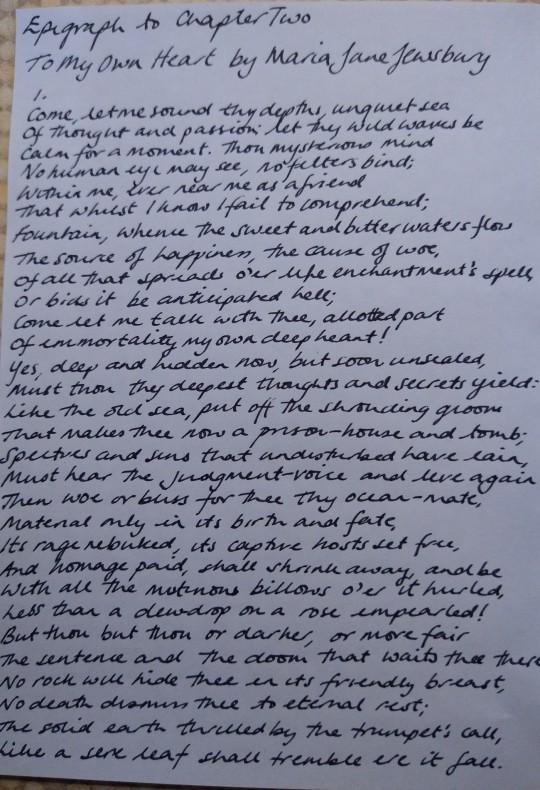 Epigraph to Chapter Two
To My Own Heart by Maria Jane Jewsbury
1.
Come, let me sound thy depths, unquiet sea
Of thought and passion; let thy wild waves be
Calm for a moment. Thou mysterious mind
No human eye may see, no fetters bind;
Within me, ever near me as a friend
That whilst I know I fail to comprehend;
Fountain, whence the sweet and bitter waters flow
The source of happiness, the cause of woe,
Of all that spreads o'er life enchantment's spell,
Or bids it be anticipated hell;
Come let me talk with thee, allotted part
Of immortality, my own deep heart!
Yes, deep and hidden now, but soon unsealed,
Must thou thy deepest thoughts and secrets yield:
Like the old sea, put off the shrouding gloom
That makes thee now a prison-house and tomb;
Spectres and sins that undisturbed have lain,
Must hear the judgment-voice and live again
Then woe or bliss for thee thy ocean-mate,
Material only in its birth and fate,
Its rage rebuked, its captive hosts set free,
And homage paid, shall shrink away, and be
With all the mutinous billows o'er it hurled,
Less than a dewdrop on a rose impearled!
But thou but thou or darker, or more fair
The sentence and the doom that waits thee there
No rock will hide thee in its friendly breast,
No death dismiss thee to eternal rest;
The solid earth thrilled by the trumpet's call,
Like a sere leaf shall tremble ere it fall.